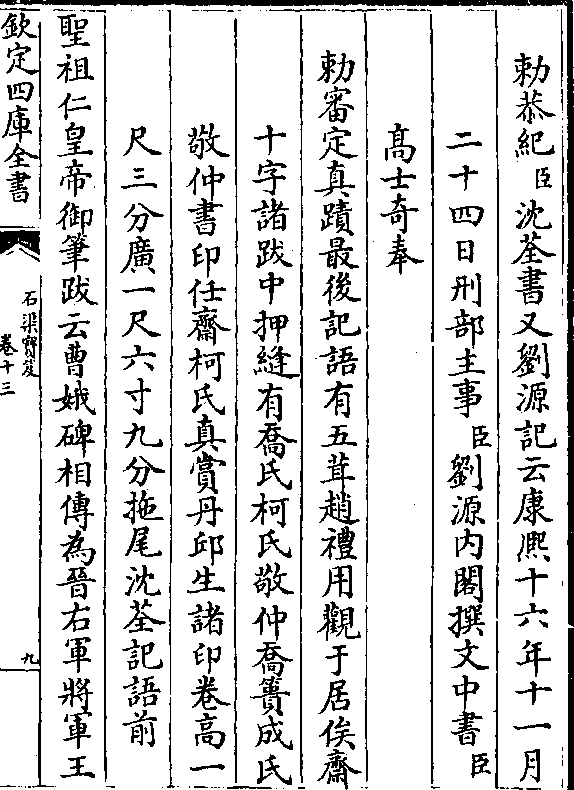 勅恭紀臣沈荃書又劉源記云康熈十六年十一月
二十四日刑部主事臣劉源内閣撰文中書臣
髙士奇奉
勅審定真蹟最後記語有五茸趙禮用觀于居俟齋
十字諸跋中押縫有喬氏柯氏敬仲喬簣成氏
敬仲書印任齋柯氏真賞丹邱生諸印卷高一
尺三分廣一尺六寸九分拖尾沈荃記語前
聖祖仁皇帝御筆跋云曹娥碑相傳為晉右軍將軍王
欽定四庫全書
石渠寳笈
卷十三
九